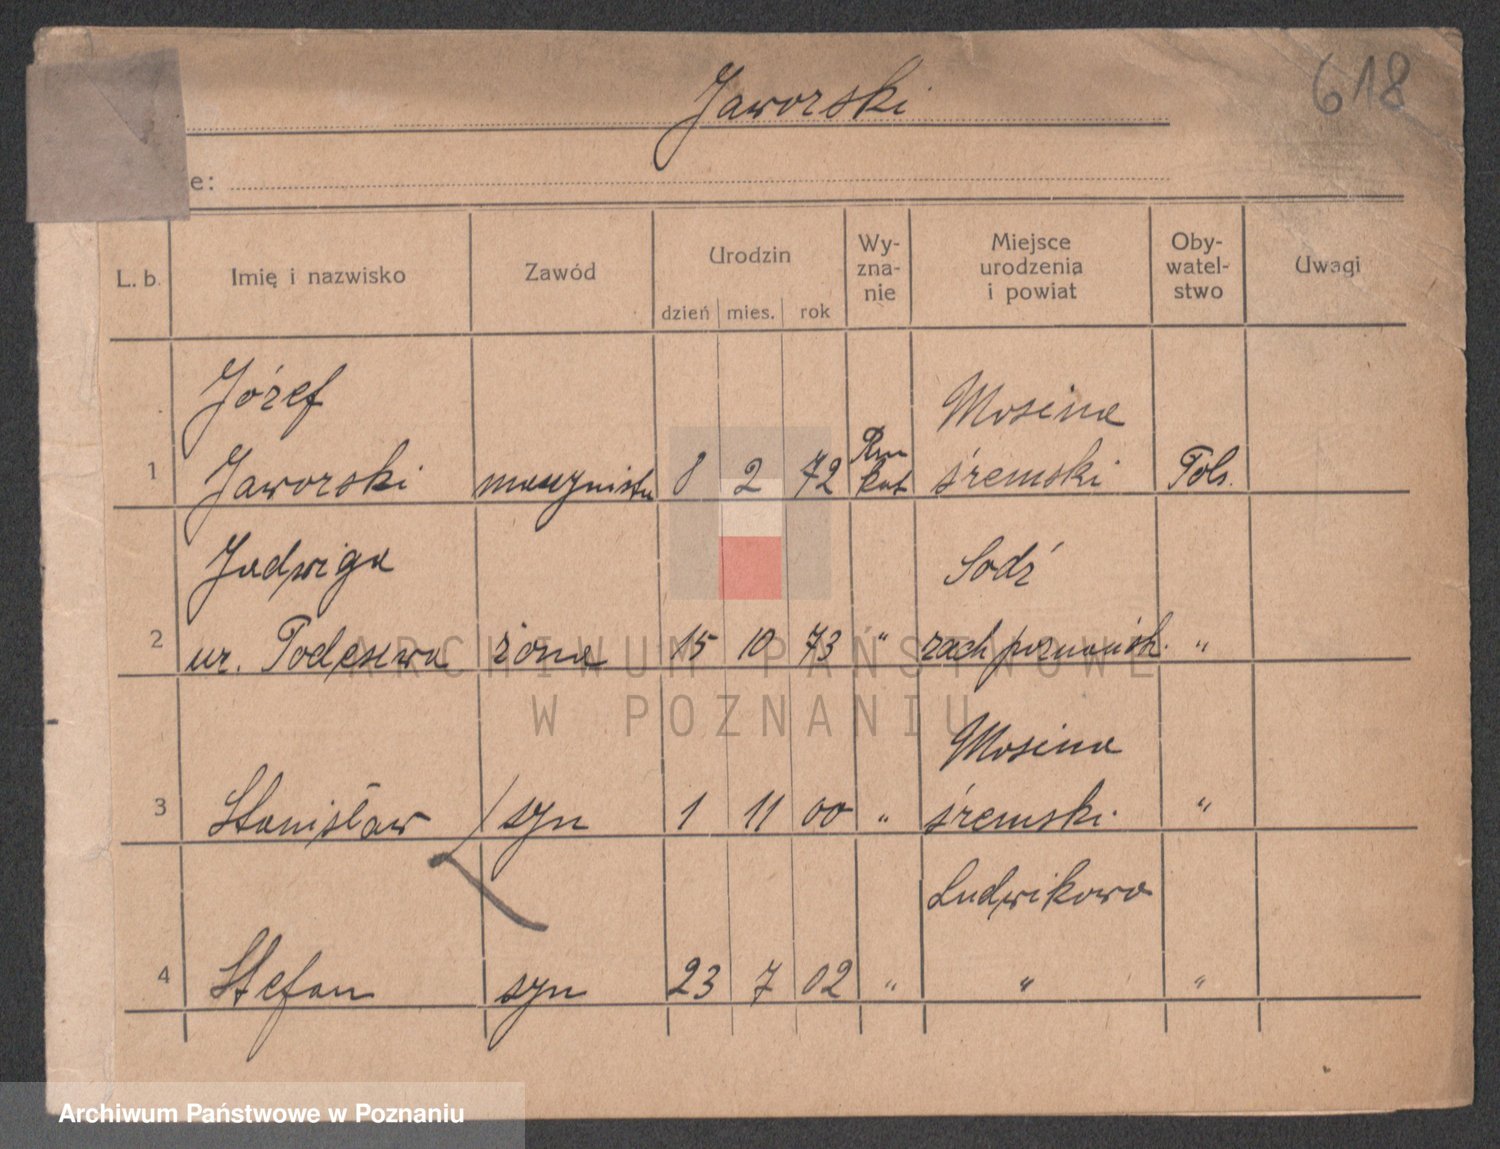 Jaworski
618
e:
L. b. Imię i nazwisko Zawód Urodzin dzień mies. rok Wy-zna-nie Miejsce urodzenia i powiat Oby-watel-stwo Uwagi
Józef Mosina
1 Jaworski maszynista 8 2 72 Rzm kat śremski Pols.
Jadwiga
2 ur. żona 15 10 73 " " 
Mosina
3 Stanisław syn 1 11 00 " śremski "
Ludwikowo
4 Stefan syn 23 7 02 " " "
ARCHIWUM PAŃSTWOWE
W POZNANIU
Archiwum Państwowe w Poznaniu